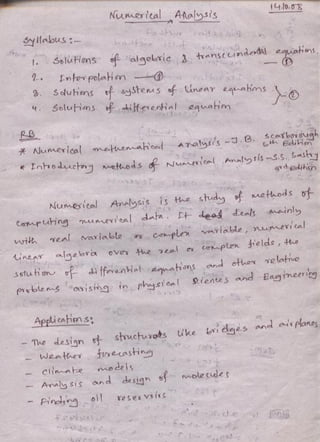 14.10.08
Numerical Analysis
Syllabus :-
1. Solutions of algebric & transcendental equations.
2. Interpolation
3. Solutions of systems of linear equations
4. Solutions of differential equation
RB
* Numerical mathematical analysis - J. B. Scarborough
6th Edition
* Introductory methods of Numerical Analysis - S.S. Sastry
3rd edition
Numerical Analysis is the study of methods of
computing numerical data. It deals mainly
with real variable or complex variable, numerical
linear algebra over the real or complex fields, the
solution of differential equations and other relative
problems arising in physical Sciences and Engineering
Applications:
- The design of structures like bridges and airplanes
- Weather forecasting
- Climate models
- Analysis and design of molecules
- Finding oil reservoirs